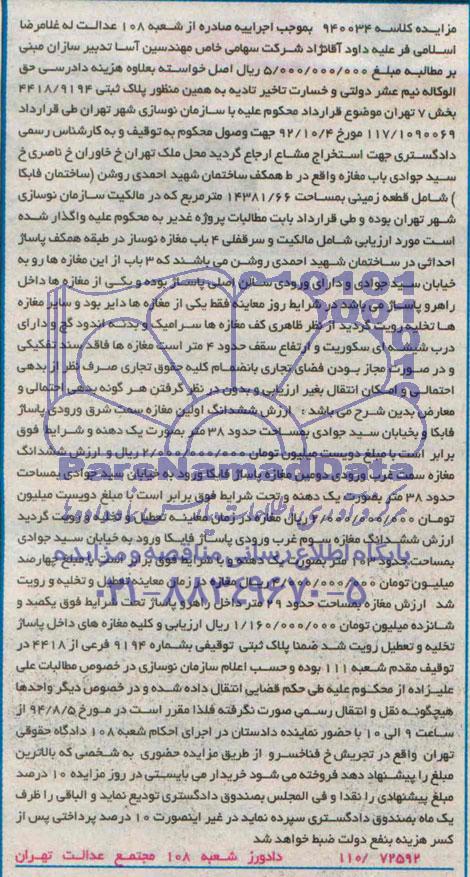 مزایده کلاسه ۹۴۰۰۳۴ بموجب اجراییه صادره از شعبه ۱۰۸ عدالت له غلامرضا
اسلامی فر علیه داود آقانژاد شرکت سهامی خاص مهندسین آسا تدبیر سازان مبنی
بر مطالبه مبلغ ۵/۰۰۰/۰۰۰/۰۰۰ ریال اصل خواسته بعلاوه هزینه دادرسی حق
الوکاله نیم عشر دولتی و خسارت تاخیر تادیه به همین منظور پلاک ثبتی ۴۴۱۸/۹۱۹۴
بخش ۷ تهران موضوع قرارداد محکوم علیه با سازمان نوسازی شهر تهران طی قرارداد
۱۱۷/۱۰۹۰۰۶۹ مورخ ۹۲/۱۰/۴ جهت وصول محکوم به توقیف و به کارشناس رسمی
دادگستری جهت استخراج مشاع ارجاع گردید محل ملک تهران خ خاوران خ ناصری خ
سید جوادی باب مغازه واقع در ط همکف ساختمان شهید احمدی روشن (ساختمان فابکا
) شامل قطعه زمینی بمساحت ۱۴۳۸۱/۶۶ مترمربع که در مالکیت سازمان نوسازی
شهر تهران بوده و طی قرارداد بابت مطالبات پروژه غدیر به محکوم علیه واگذار شده
است مورد ارزیابی شامل مالکیت و سرقفلی ۴ باب مغازه نوساز در طبقه همکف پاساژ
احداثی در ساختمان شهید احمدی روشن می باشند که ۳ باب از این مغازه ها رو به
خیابان سید جوادی و دارای ورودی سالن اصلی پاساژ بوده و یکی از مغازه ها داخل
راهرو پاساژ می باشد در شرایط روز معاینه فقط یکی از مغازه ها دایر بود و سایر مغازه
ها تخلیه رویت گردید از نظر ظاهری کف مغازه ها سرامیک و بدنه اندود گچ و دارای
درب شیشه ای سکوریت و ارتفاع سقف حدود ۴ متر است مغازه ها فاقد سند تفکیکی
و در صورت مجاز بودن فضای تجاری بانضمام کلیه حقوق تجاری صرف نظر از بدهی
احتمالی و امکان انتقال بغیر ارزیابی و بدون در نظر گرفتن هر گونه بدهی احتمالی و
معارض بدین شرح می باشد : ارزش ششدانگ اولین مغازه سمت شرق ورودی پاساژ
فابکا و بخیابان سید جوادی بمساحت حدود ۳۸ متر بصورت یک دهنه و شرایط فوق
برابر است با مبلغ دویست میلیون تومان ۲/۰۰۰/۰۰۰/۰۰۰ ریال و ارزش ششدانگ
مغازه سمت غرب ورودی دومین مغازه پاساژ فابکا ورود به خیابان سید جوادی بمساحت
حدود ۳۸ متر بصورت یک دهنه و تحت شرایط فوق برابر است با مبلغ دویست میلیون
تومان ۲/۰۰۰/۰۰۰/۰۰۰ ریال مغازه در زمان معاینه تعطیل و تخلیه و رویت گردید
ارزش ششدانگ مغازه سوم غرب ورودی پاساژ فابکا ورود به خیابان سید جوادی
بمساحت حدود ۱۰۳ متر بصورت یک دهنه و با شرایط فوق برابر است با مبلغ چهارصد
میلیون تومان ۴/۰۰۰/۰۰۰/۰۰۰ ریال مغازه در زمان معاینه تعطیل و تخلیه و رویت
شد ارزش مغازه بمساحت حدود ۲۹ متر داخل راهرو پاساژ تحت شرایط فوق یکصد و
شانزده میلیون تومان ۱/۱۶۰/۰۰۰/۰۰۰ ریال ارزیابی و کلیه مغازه های داخل پاساژ
تخلیه و تعطیل رویت شد ضمنا پلاک ثبتی توقیفی بشماره ۹۱۹۴ فرعی از ۴۴۱۸ در
توقیف مقدم شعبه ۱۱۱ بوده و حسب اعلام سازمان نوسازی در خصوص مطالبات علی
علیزاده از محکوم علیه طی حکم قضایی انتقال داده شده و در خصوص دیگر واحدها
هیچگونه نقل و انتقال رسمی صورت نگرفته فلذا مقرر است در مورخ ۹۴/۸/۵ از
ساعت ۹ الی ۱۰ با حضور نماینده دادستان در اجرای احکام شعبه ۱۰۸ دادگاه حقوقی
تهران واقع در تجریش خ فناخسرو از طریق مزایده حضوری به شخصی که بالاترین
مبلغ را پیشنهاد دهد فروخته می شود خریدار می بایستی در روز مزایده ۱۰ درصد
مبلغ پیشنهادی را نقدا و فی المجلس بصندوق دادگستری تودیع نماید و الباقی را ظرف
یک ماه بصندوق دادگستری سپرده نماید در غیر اینصورت ۱۰ درصد پرداختی پس از
کسر هزینه بنفع دولت ضبط خواهد شد
۱۱۰/ ۷۲۵۹۲ دادورز شعبه ۱۰۸ مجتمع عدالت تهران
ParsNamadData
پایگاه اطلاع رسانی مناقصه و مزایده
۰۲۱-۸۸۳۴۹۶۷۰-۵